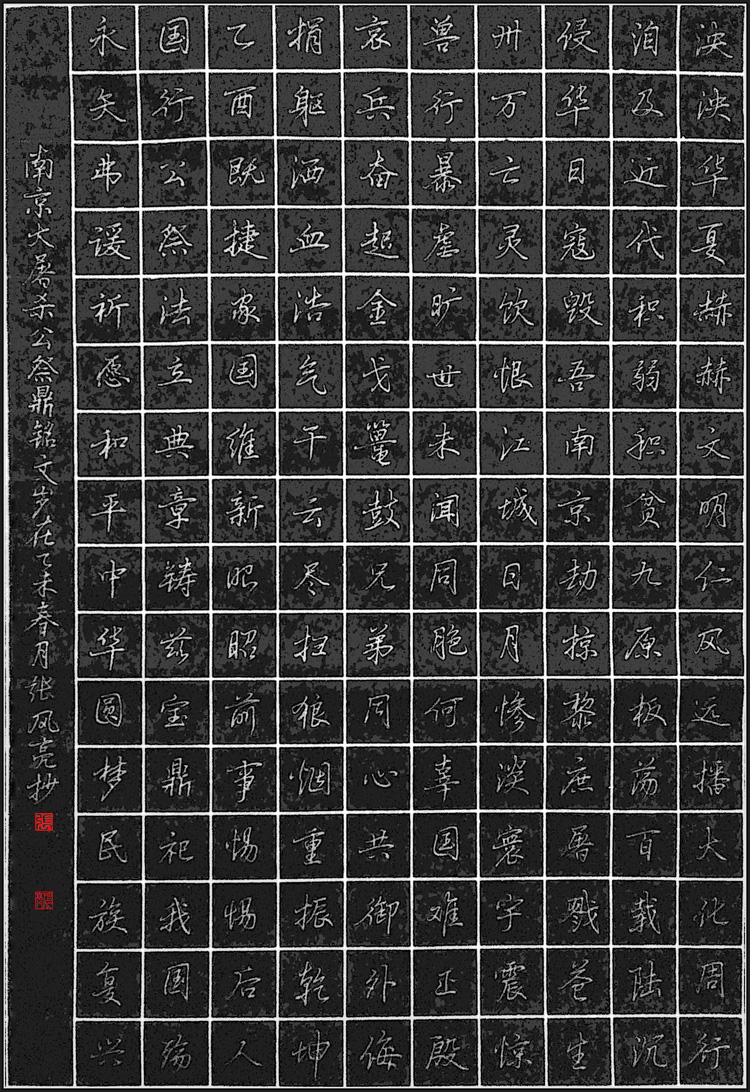 泱泱华夏赫赫文明仁风远播大化周行
洎及近代积弱积贫九原板荡百载陆沉
侵华日寇毁吾南京劫掠黎庶屠戮苍生
卅万亡灵饮恨江城日月惨淡寰宇震惊
兽行暴虐旷世未闻同胞何辜国难正殷
哀兵奋起金戈鼍鼓兄弟同心共御外侮
捐躯洒血浩气干云尽扫狼烟重振乾坤
乙酉既捷家国维新昭昭前事惕惕后人
国行公祭法立典章铸兹宝鼎祀我国殇
永矢弗谖祈愿和平中华圆梦民族复兴
南京大屠杀公祭鼎铭文岁在乙未春月张凤亮抄
張